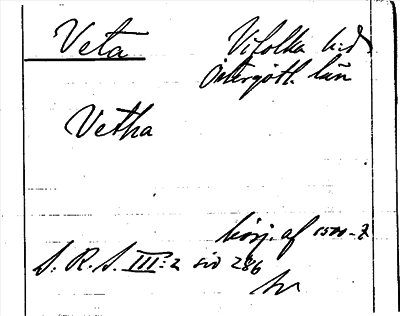 Veta
Vifolka hd
Östergötl. län
Vetha
börj. af 1500-t
S. R. S. III:2 sid 286